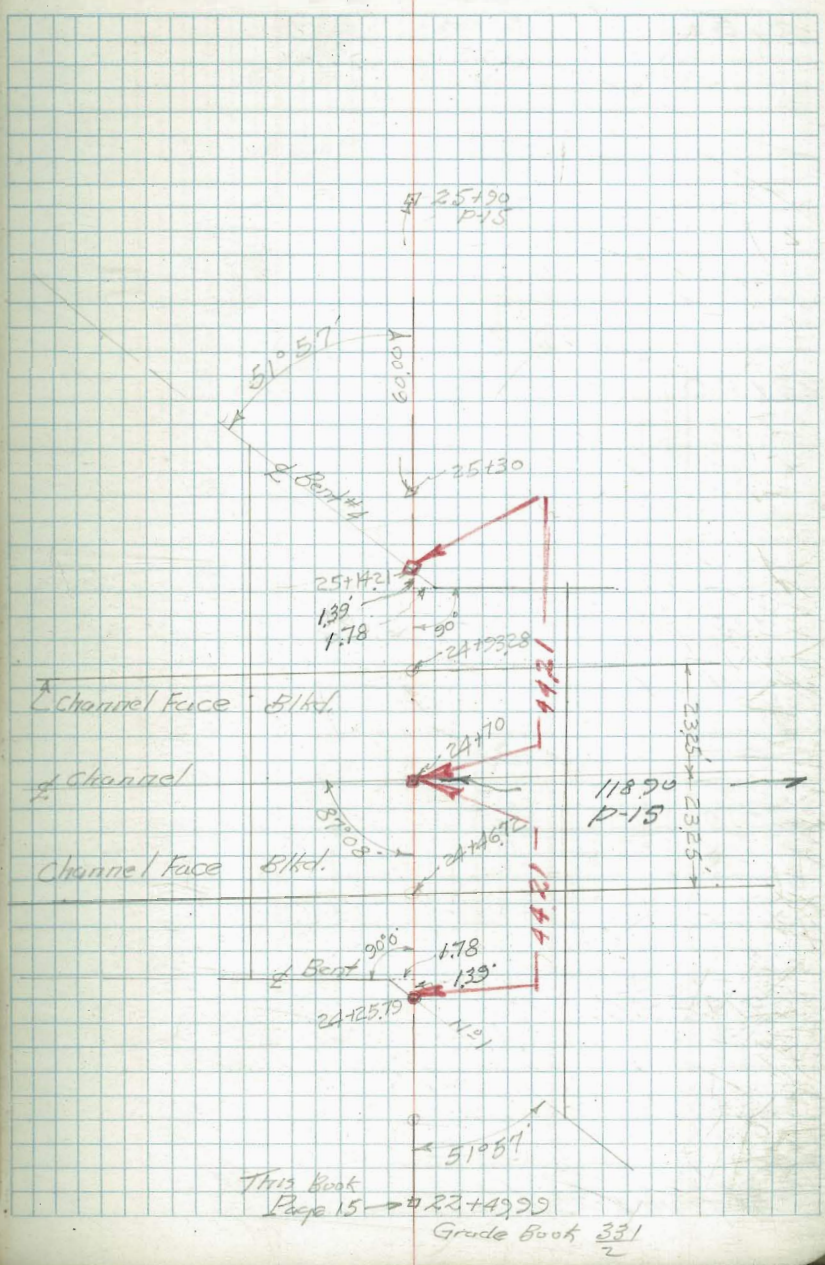 25+90
P-15
51° 57'
60.00
25+30
℄ Bent #4
25+14.21
1.39'
1.78
90°
24+93.28
44.21
Channel Face Blkd.
23.25'
24+70
℄ Channel
118.90
P-15
87°08'
23.25'
24+46.72
Channel Face Blkd.
44.21
90°0'
1.78
℄ Bent
1.39'
24+25.79
No 1
51°57'
This Book
Page 15 → 22+49.99
Grade Book 331/2